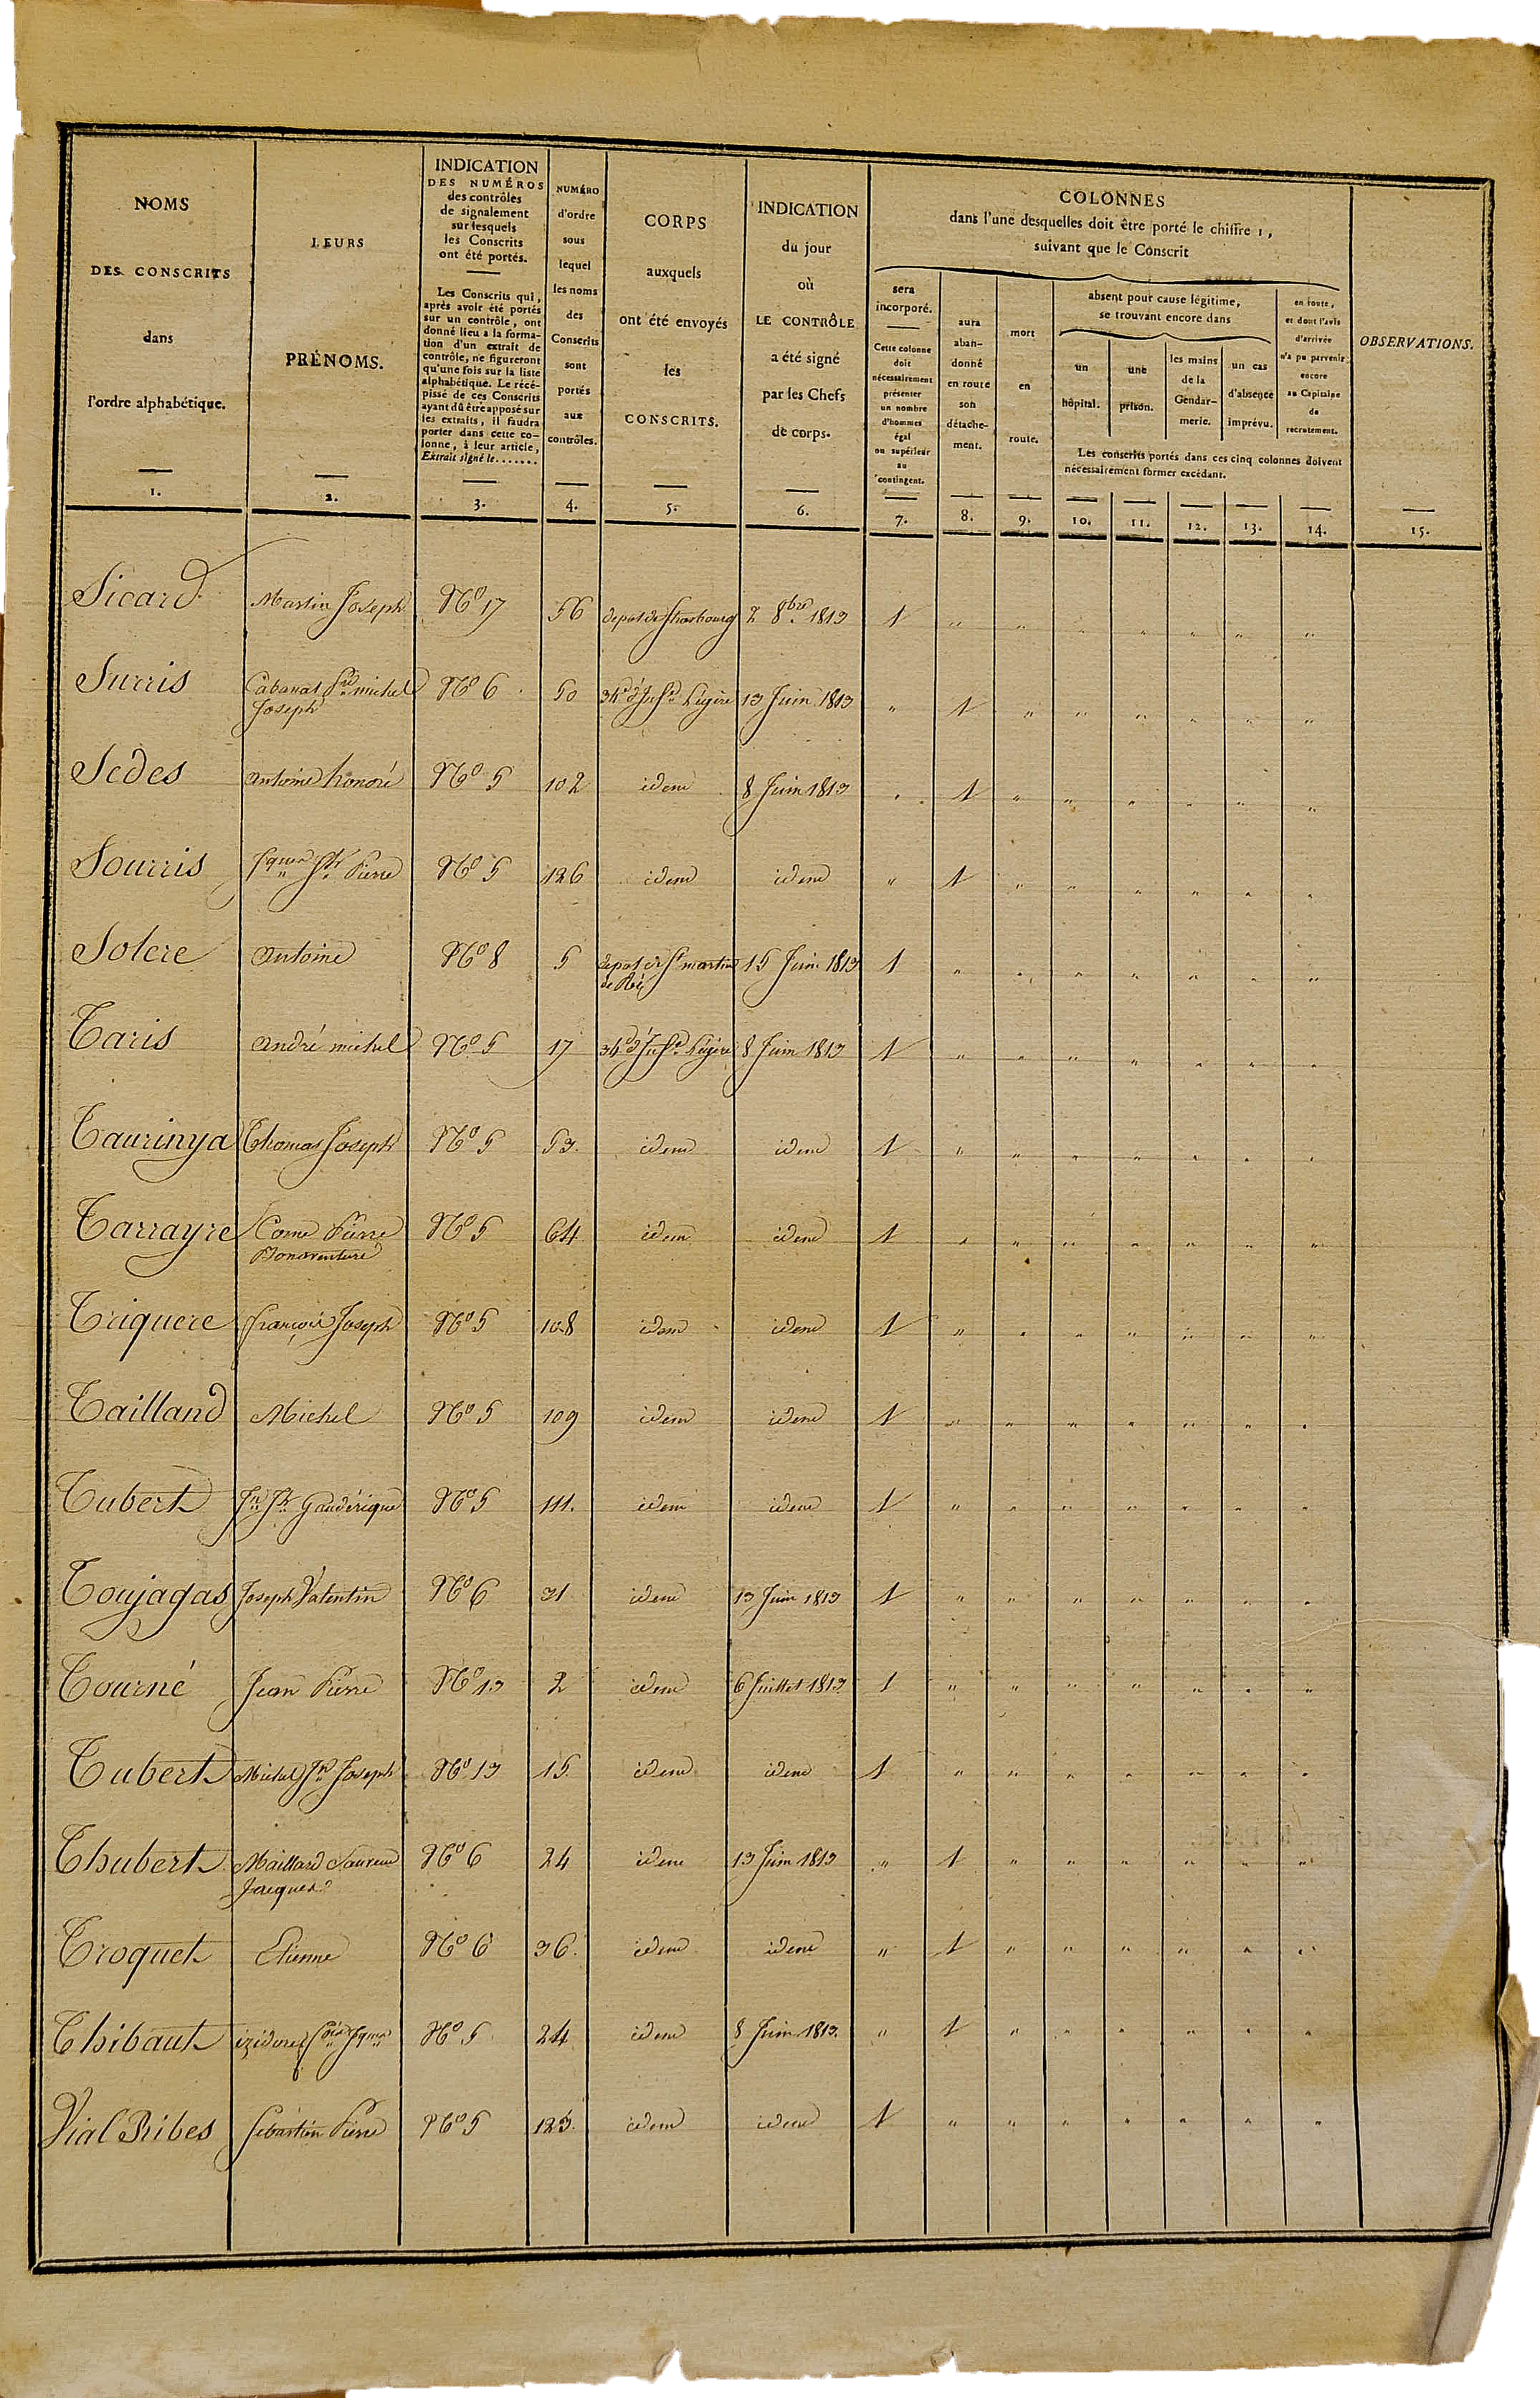 NOMS
DES CONSCRITS
dans
l'ordre alphabétique.
1.
LEURS
PRÉNOMS.
2.
INDICATION
DES NUMÉROS
des contrôles
de signalement
sur lesquels
les Conscrits
ont été portés.
Les Conscrits qui,
après avoir été portés
sur un contrôle, ont
donné lieu à la forma-
tion d'un extrait de
contrôle, ne figureront
qu'une fois sur la liste
alphabétique. Le récé-
pissé de ces Conscrits
ayant dû être apposé sur
les extraits, il faudra
porter dans cette co-
lonne, à leur article,
Extrait signé le.......
3.
NUMÉRO
d'ordre
sous
lequel
les noms
des
Conscrits
sont
portés
aux
contrôles.
4.
CORPS
auxquels
ont été envoyés
les
CONSCRITS.
5.
INDICATION
du jour
où
LE CONTRÔLE
a été signé
par les Chefs
de corps.
6.
COLONNES
dans l'une desquelles doit être porté le chiffre 1,
suivant que le Conscrit
sera
incorporé.
Cette colonne
doit
nécessairement
présenter
un nombre
d'hommes
égal
ou supérieur
au
contingent.
7.
aura
aban-
donné
en route
son
détache-
ment.
8.
mort
en
route.
9.
absent pour cause légitime,
se trouvant encore dans
un
hôpital.
une
prison.
les mains
de la
Gendar-
merie.
un cas
d'absence
imprévu.
en route,
et dont l'avis
d'arrivée
n'a pu parvenir
encore
au Capitaine
de
recrutement.
Les conscrits portés dans ces cinq colonnes doivent
nécessairement former excédant.
10. 11. 12. 13. 14.
OBSERVATIONS.
15.
Sicard Martin Joseph No 17 56 depot de Strasbourg 2 8bre 1813 1 " " " " " " "
Surris Cabanat michel No 6 50 34e d'Infie Légère 13 Juin 1813 " 1 " " " " " "
Joseph
Sedes antoine honoré No 5 102 idem 8 Juin 1813 " 1 " " " " " "
Sourris Pierre No 5 126 idem idem " 1 " " " " " "
Solere antoine No 8 5 depot de St martin 15 Juin 1813 1 " " " " " " "
de Ré
Taris andré michel No 5 17 34e d'Infie Légère 8 Juin 1813 1 " " " " " " "
Taurinya Thomas Joseph No 5 53 idem idem 1 " " " " " " "
Tarrayre Come Pierre No 5 64 idem idem 1 " " " " " " "
Bonaventure
Triquere françois Joseph No 5 108 idem idem 1 " " " " " " "
Tailland Michel No 5 109 idem idem 1 " " " " " " "
Tubert Jn Jh Gaudérique No 5 111. idem idem 1 " " " " " " "
Toujagas Joseph Valentin No 6 31 idem 13 Juin 1813 1 " " " " " " "
Tourné Jean Pierre No 13 2 idem 6 Juillet 1813 1 " " " " " " "
Tubert Michel Jn Joseph No 13 15. idem idem 1 " " " " " " "
Thubert Maillard Laurend No 6 24 idem 13 Juin 1813 " 1 " " " " " "
Jacques
Troquet Etienne No 6 36. idem idem " 1 " " " " " "
Thibaut izidore fois Jques No 5 24 idem 8 Juin 1813. " 1 " " " " " "
Vial Ribes Sebastien Pierre No 5 123. idem idem 1 " " " " " " "